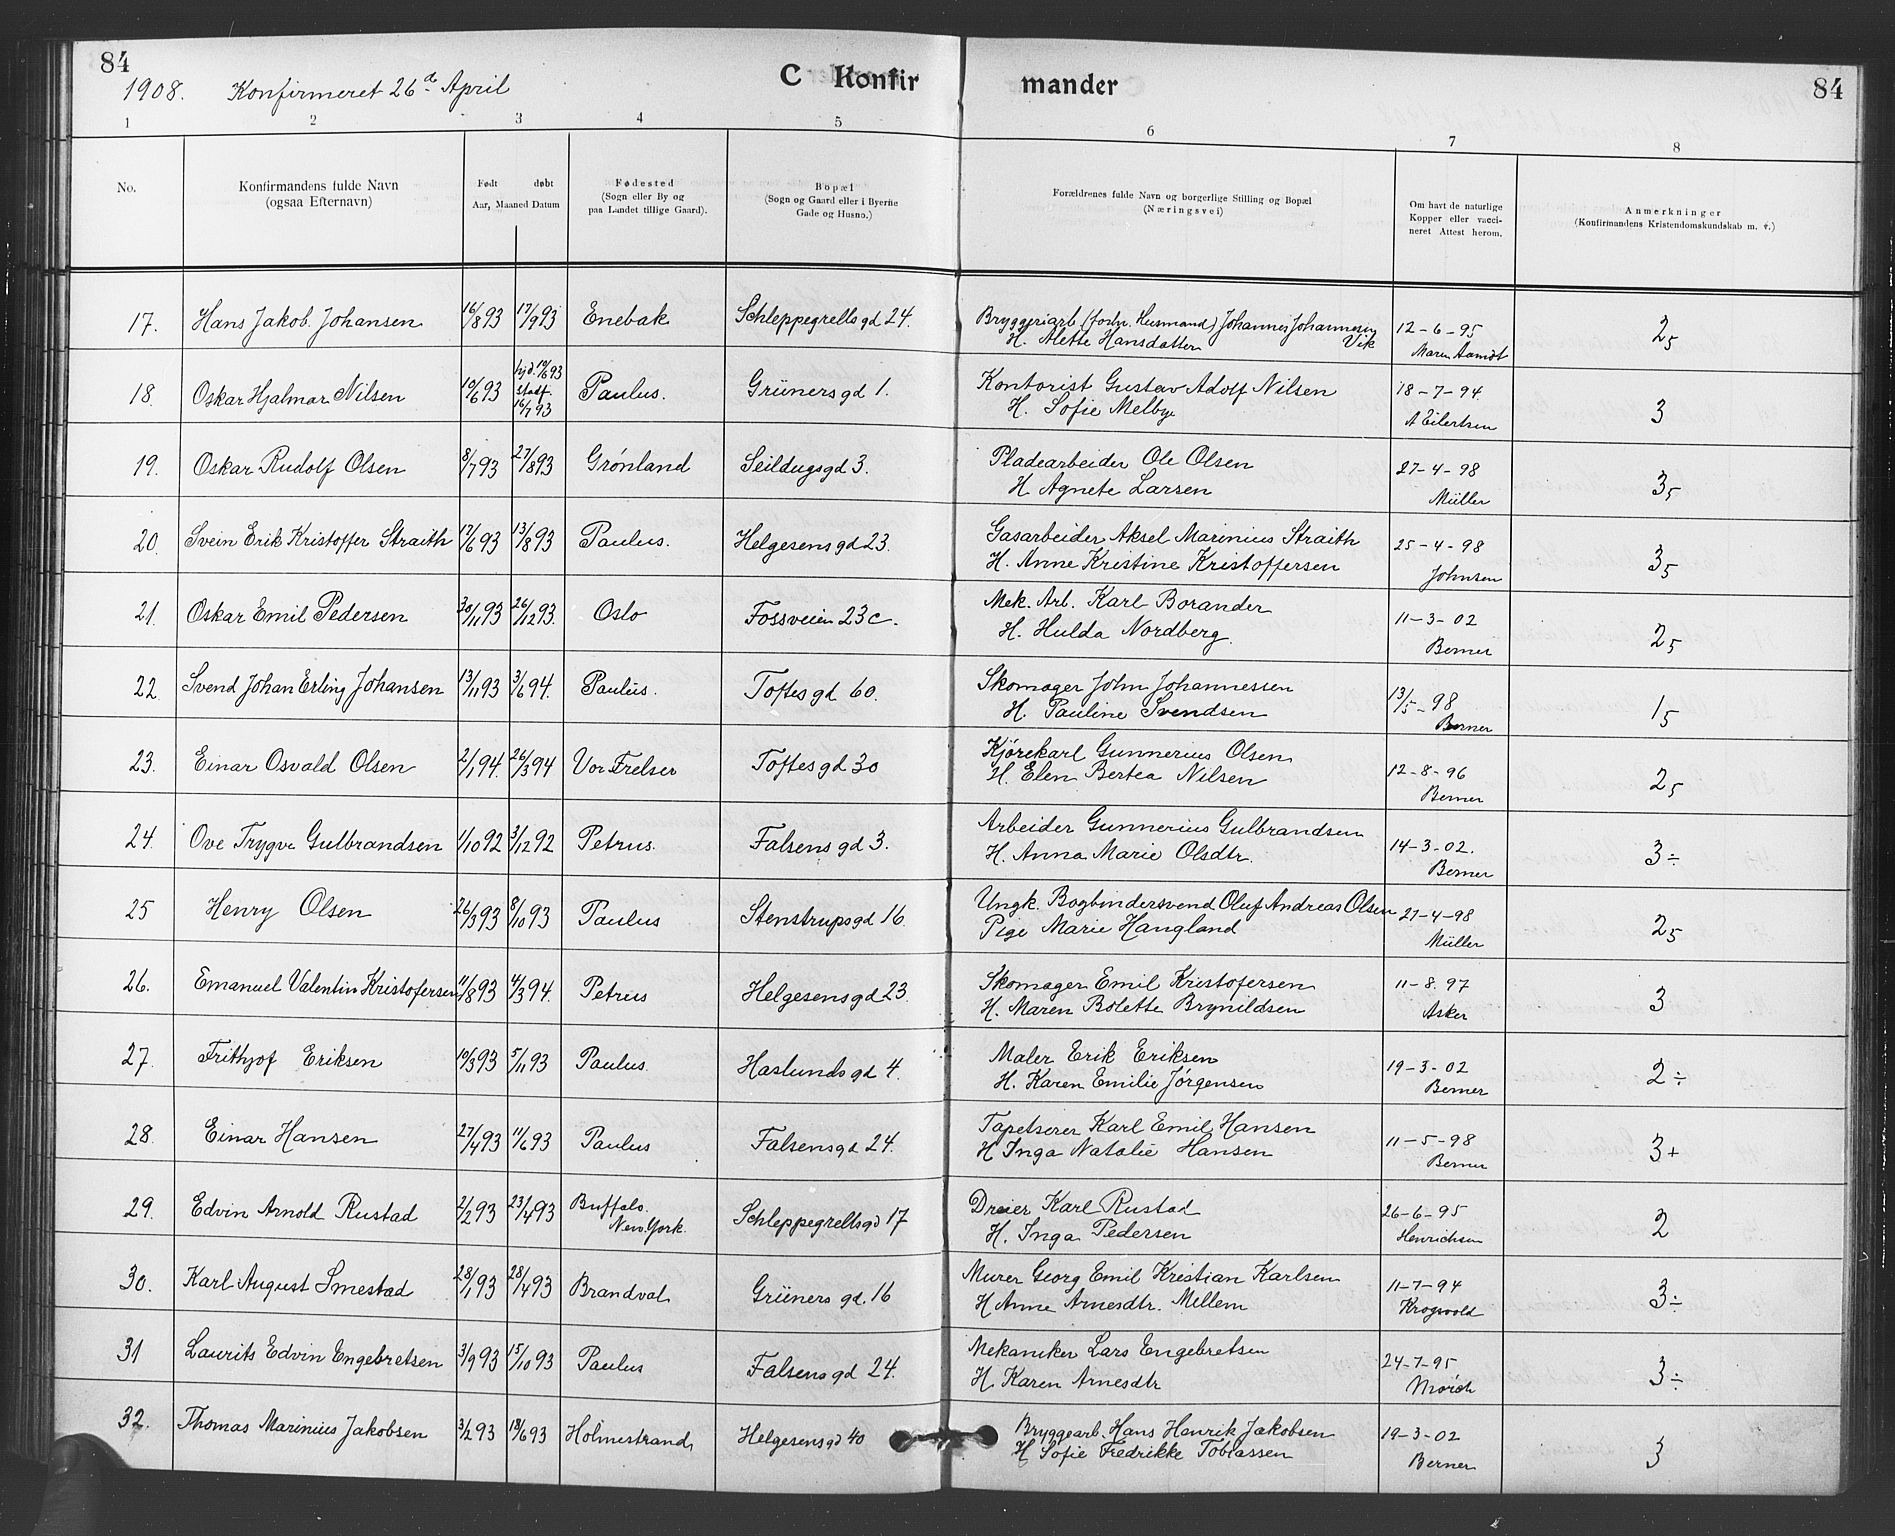 84
1908. Konfirmeret 26d April
C Konfirmander
84
1 2 3 4 5 6 7 8
No.
Konfirmandens fulde Navn
(ogsaa Efternavn)
Født døbt
Aar, Maaned Datum
Fødested
(Sogn eller By og
paa Landet tillige Gaard).
Bopæl
(Sogn og Gaard eller i Byerne
Gade og Husno.)
Forældrenes fulde Navn og borgerlige Stilling og Bopæl
(Næringsvei)
Om havt de naturlige
Kopper eller vacci-
neret Attest herom.
Anmerkninger
(Konfirmandens Kristendomskundskab m. v.)
17. Hans Jakob Johansen 16/8 93 17/9 93 Enebak Schleppegrells gd 24. Bryggeriarb. (fordn. Husmand) Johannes Johannesen Vik 12-6-95 2,5
H. Alette Hansdatter Maren Aamodt
18. Oskar Hjalmar Nilsen 10/6 93 hjd. 12/6 93 stadf. 16/7 93 Paulus. Grüners gd 1. Kontorist Gustav Adolf Nilsen 18-7-94 3
H. Sofie Melbye A Eilertsen
19. Oskar Rudolf Olsen 8/7 93 27/8 93 Grønland Seildugsgd 3. Pladearbeider Ole Olsen 27-4-98 3,5
H. Agnete Larsen Müller
20. Svein Erik Kristoffer Straith 17/6 93 13/8 93 Paulus. Helgesens gd 23. Gasarbeider Aksel Marinius Straith 25-4-98 3,5
H. Anne Kristine Kristoffersen Johnsen
21. Oskar Emil Pedersen 30/11 93 26/12 93. Oslo Fossveien 23c. Mek. Arb. Karl Borander 11-3-02 2,5
H. Hulda Nordberg. Berner
22. Svend Johan Erling Johansen 13/11 93 3/6 94. Paulus. Toftes gd 60. Skomager John Johannessen 13/5-98 1,5
H. Pauline Svendsen Berner
23. Einar Osvald Olsen 2/1 94. 26/3 94 Vor Frelser Toftes gd 30 Kjørekarl Gunnerius Olsen 12-8-96 2,5
H. Elen Bertea Nilsen Berner
24. Ove Trygve Gulbrandsen 1/10 92 3/12 92 Petrus. Falsens gd 3. Arbeider Gunnerius Gulbrandsen 14-3-02. 3÷
H. Anna Marie Olsdtr. Berner
25 Henry Olsen 26/3 93 8/10 93 Paulus Stenstrups gd 16. Ungk. Bogbindersvend Oluf Andreas Olsen 27-4-98 2,5
Pige Marie Haugland Müller
26. Emanuel Valentin Kristofersen 11/8 93 4/3 94. Petrus Helgesens gd 23. Skomager Emil Kristofersen 11-8.97 3
H. Maren Bolette Brynildsen Asker
27. Frithjof Eriksen 10/3 93 5/11 93 Paulus. Haslunds gd 4. Maler Erik Eriksen 19-3-02 2÷
H. Karen Emilie Jørgensen Berner
28. Einar Hansen 27/4 93 11/6 93 Paulus Falsens gd 24. Tapetserer Karl Emil Hansen 11-5-98 3+
H Inga Natalie Hansen Berner
29. Edvin Arnold Rustad 2/2 93 23/4 93 Buffalo. New. York. Schleppegrells gd 17 Dreier Karl Rustad 26-6-95 2
H. Inga Pedersen Henrichsen
30. Karl August Smestad 28/1 93 28/4 93 Brandval Grüners gd. 16 Murer Georg Emil Kristian Karlsen 11-7-94 3÷
H Anne Arnesdtr. Mellem Krogvold
31 Laurits Edvin Engebretsen 3/9 93 15/10 93 Paulus Falsens gd 24. Mekaniker Lars Engebretsen 24-7-95 3÷
H. Karen Arnesdtr Mørch
32. Thomas Marinius Jakobsen 3/2 93 18/6 93 Holmestrand, Helgesens gd 40 Bryggearb. Hans Henrik Jakobsen 19-3-02 3
H Sofie Fredrikke Tobiassen Berner